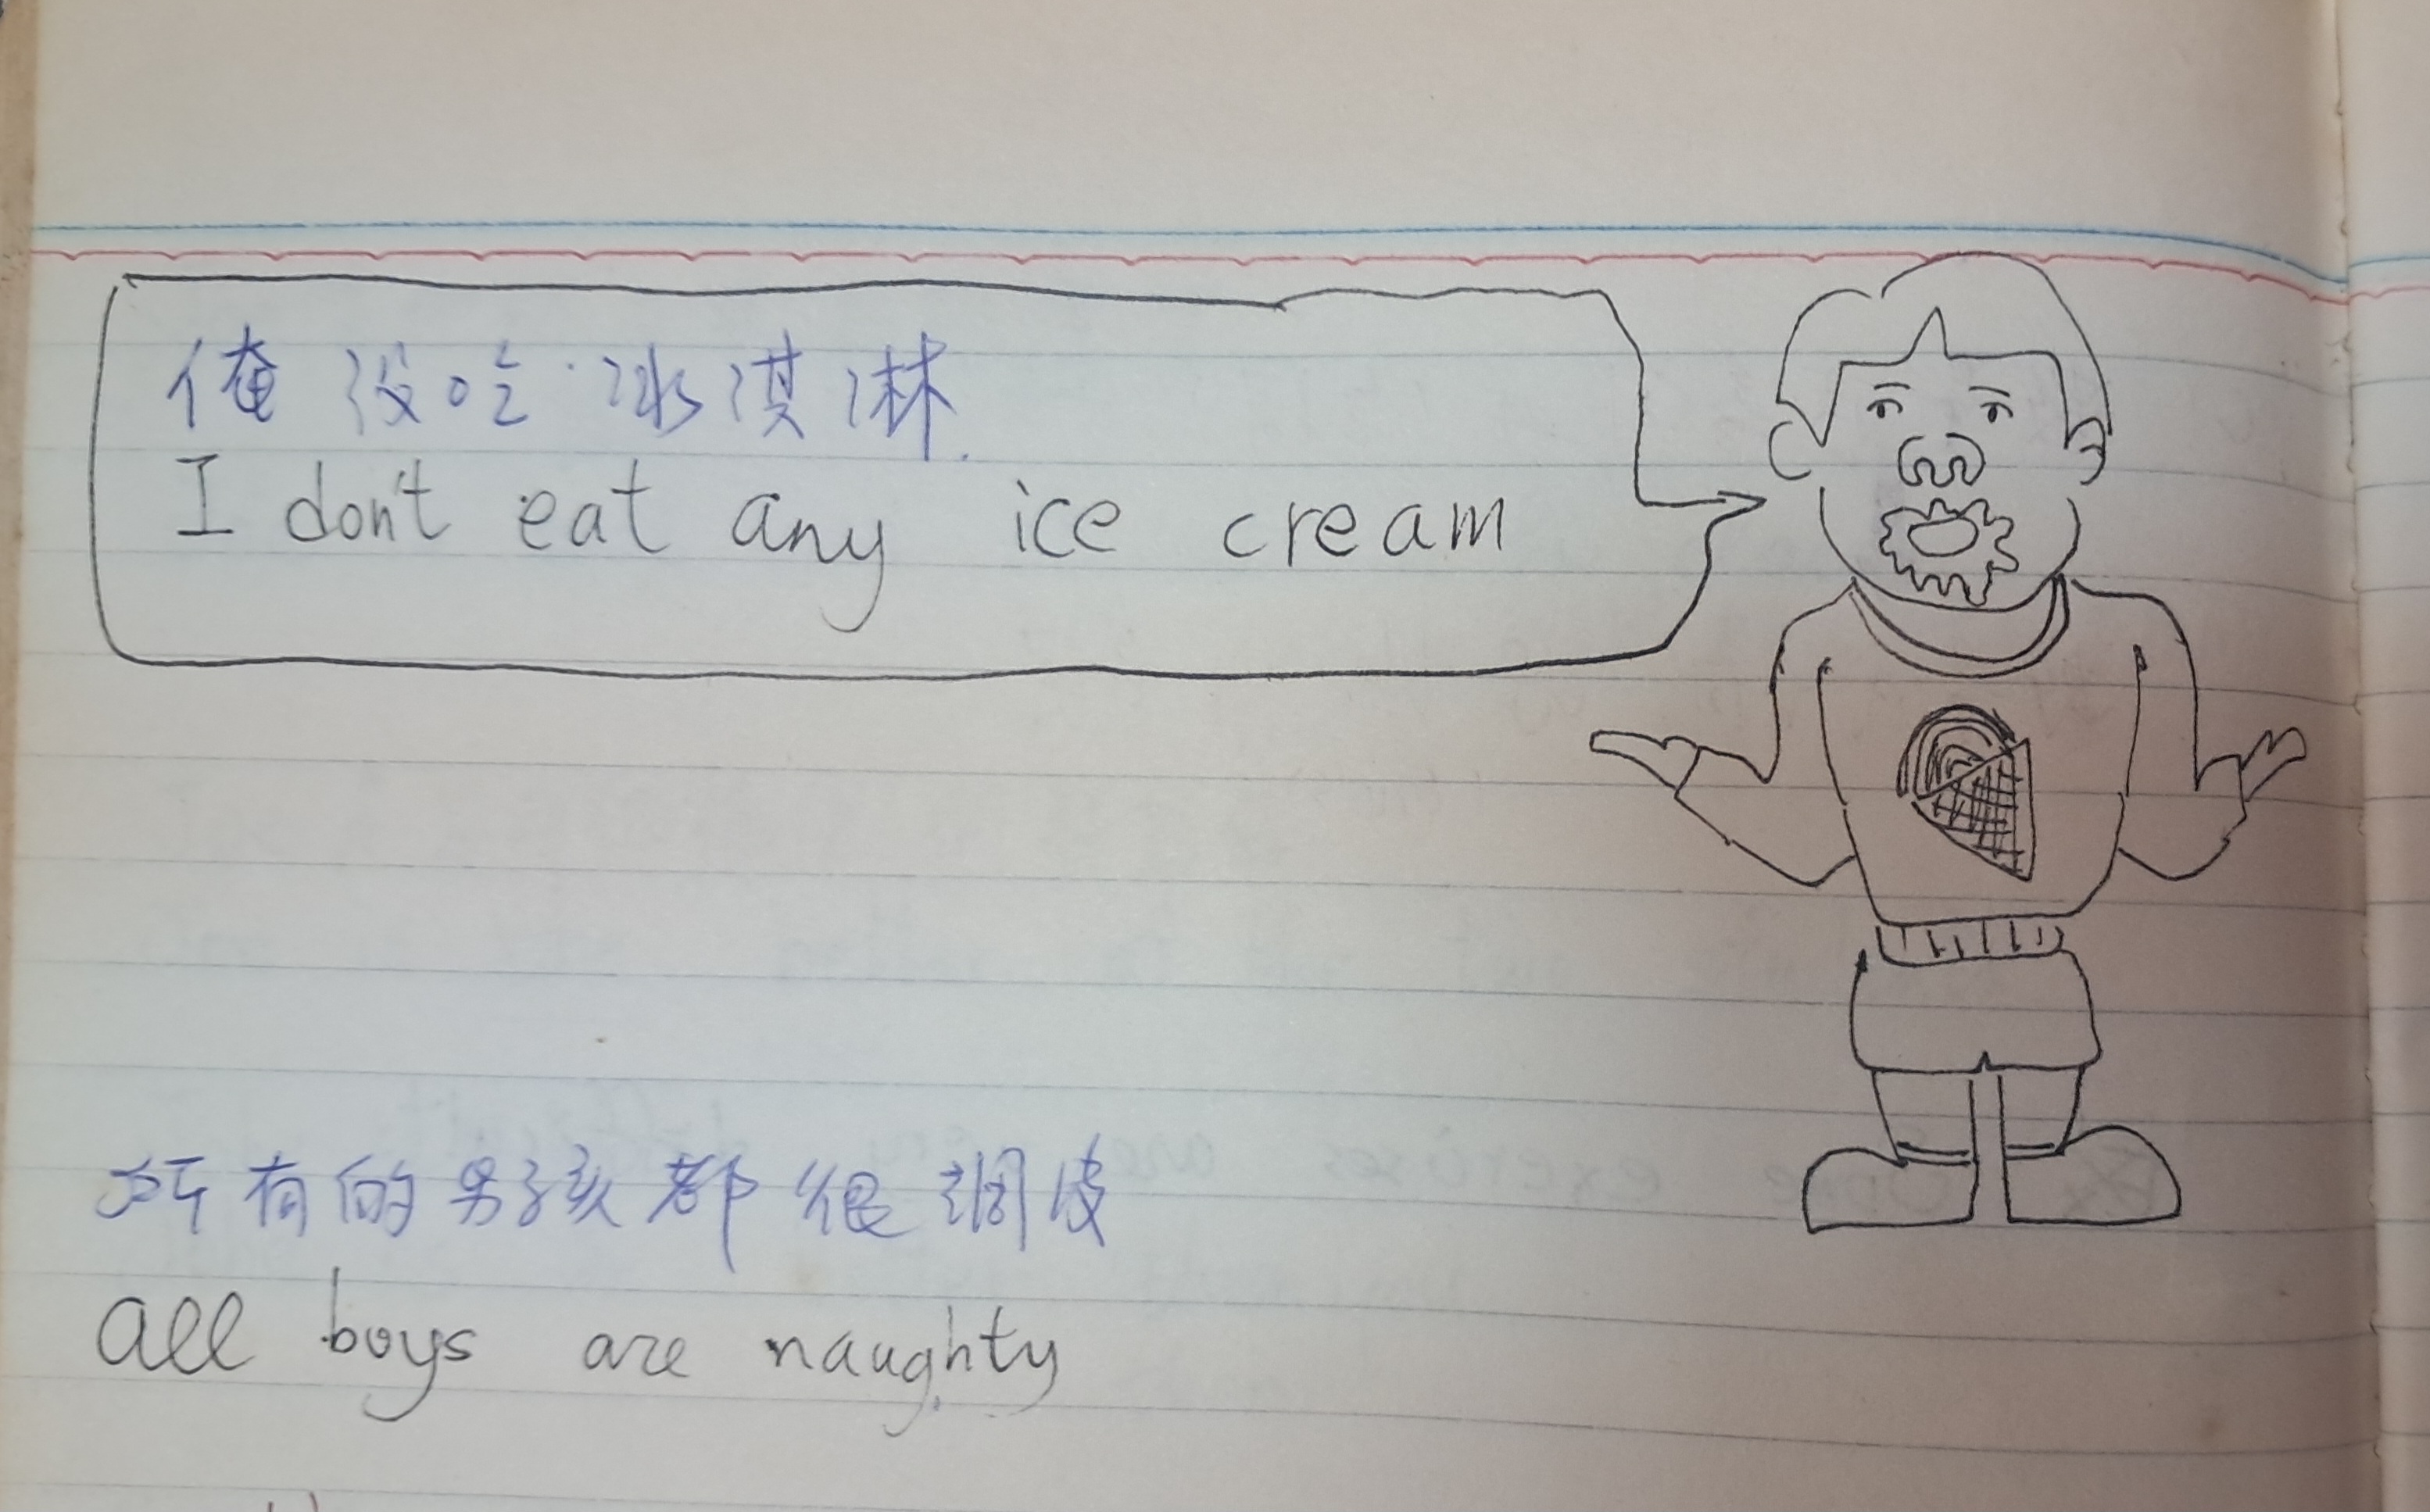 俺没吃冰淇淋.
I don't eat any ice cream
所有的男孩都很调皮
all boys are naughty